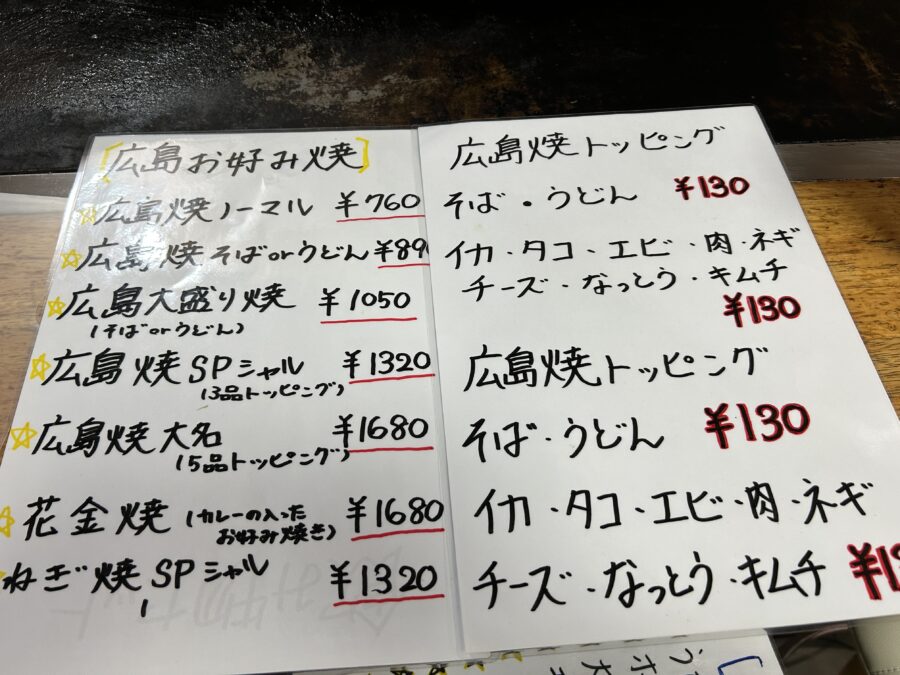 [広島お好み焼]
☆広島焼ノーマル ¥760
☆広島焼そばorうどん ¥89
☆広島大盛り焼 ¥1050
(そばorうどん)
☆広島焼SPシャル ¥1320
(3品トッピング)
☆広島焼大名 ¥1680
(5品トッピング)
☆花金焼(カレーの入った ¥1680
お好み焼き)
ねぎ焼SPシャル ¥1320
広島焼トッピング
そば・うどん ¥130
イカ・タコ・エビ・肉・ネギ
チーズ・なっとう・キムチ
¥130
広島焼トッピング
そば・うどん ¥130
イカ・タコ・エビ・肉・ネギ
チーズ・なっとう・キムチ ¥13